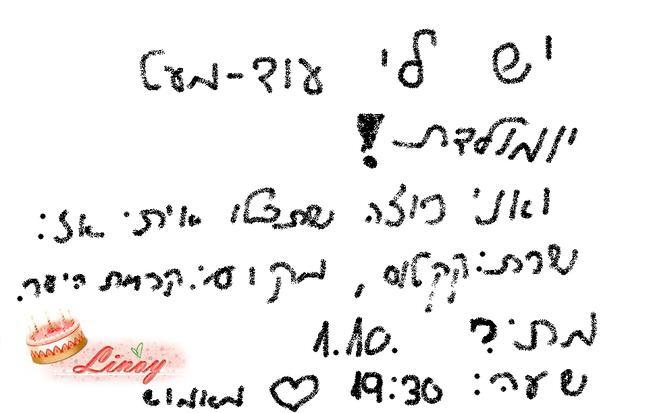 יש לי עוד-מעט
יומולדת!
ואני רוצה שתבלו איתי אז:
שרת: קקטוס, מקום: קרית היער.
מתי? 1.10.
שעה: 19:30 ♡
Linoy